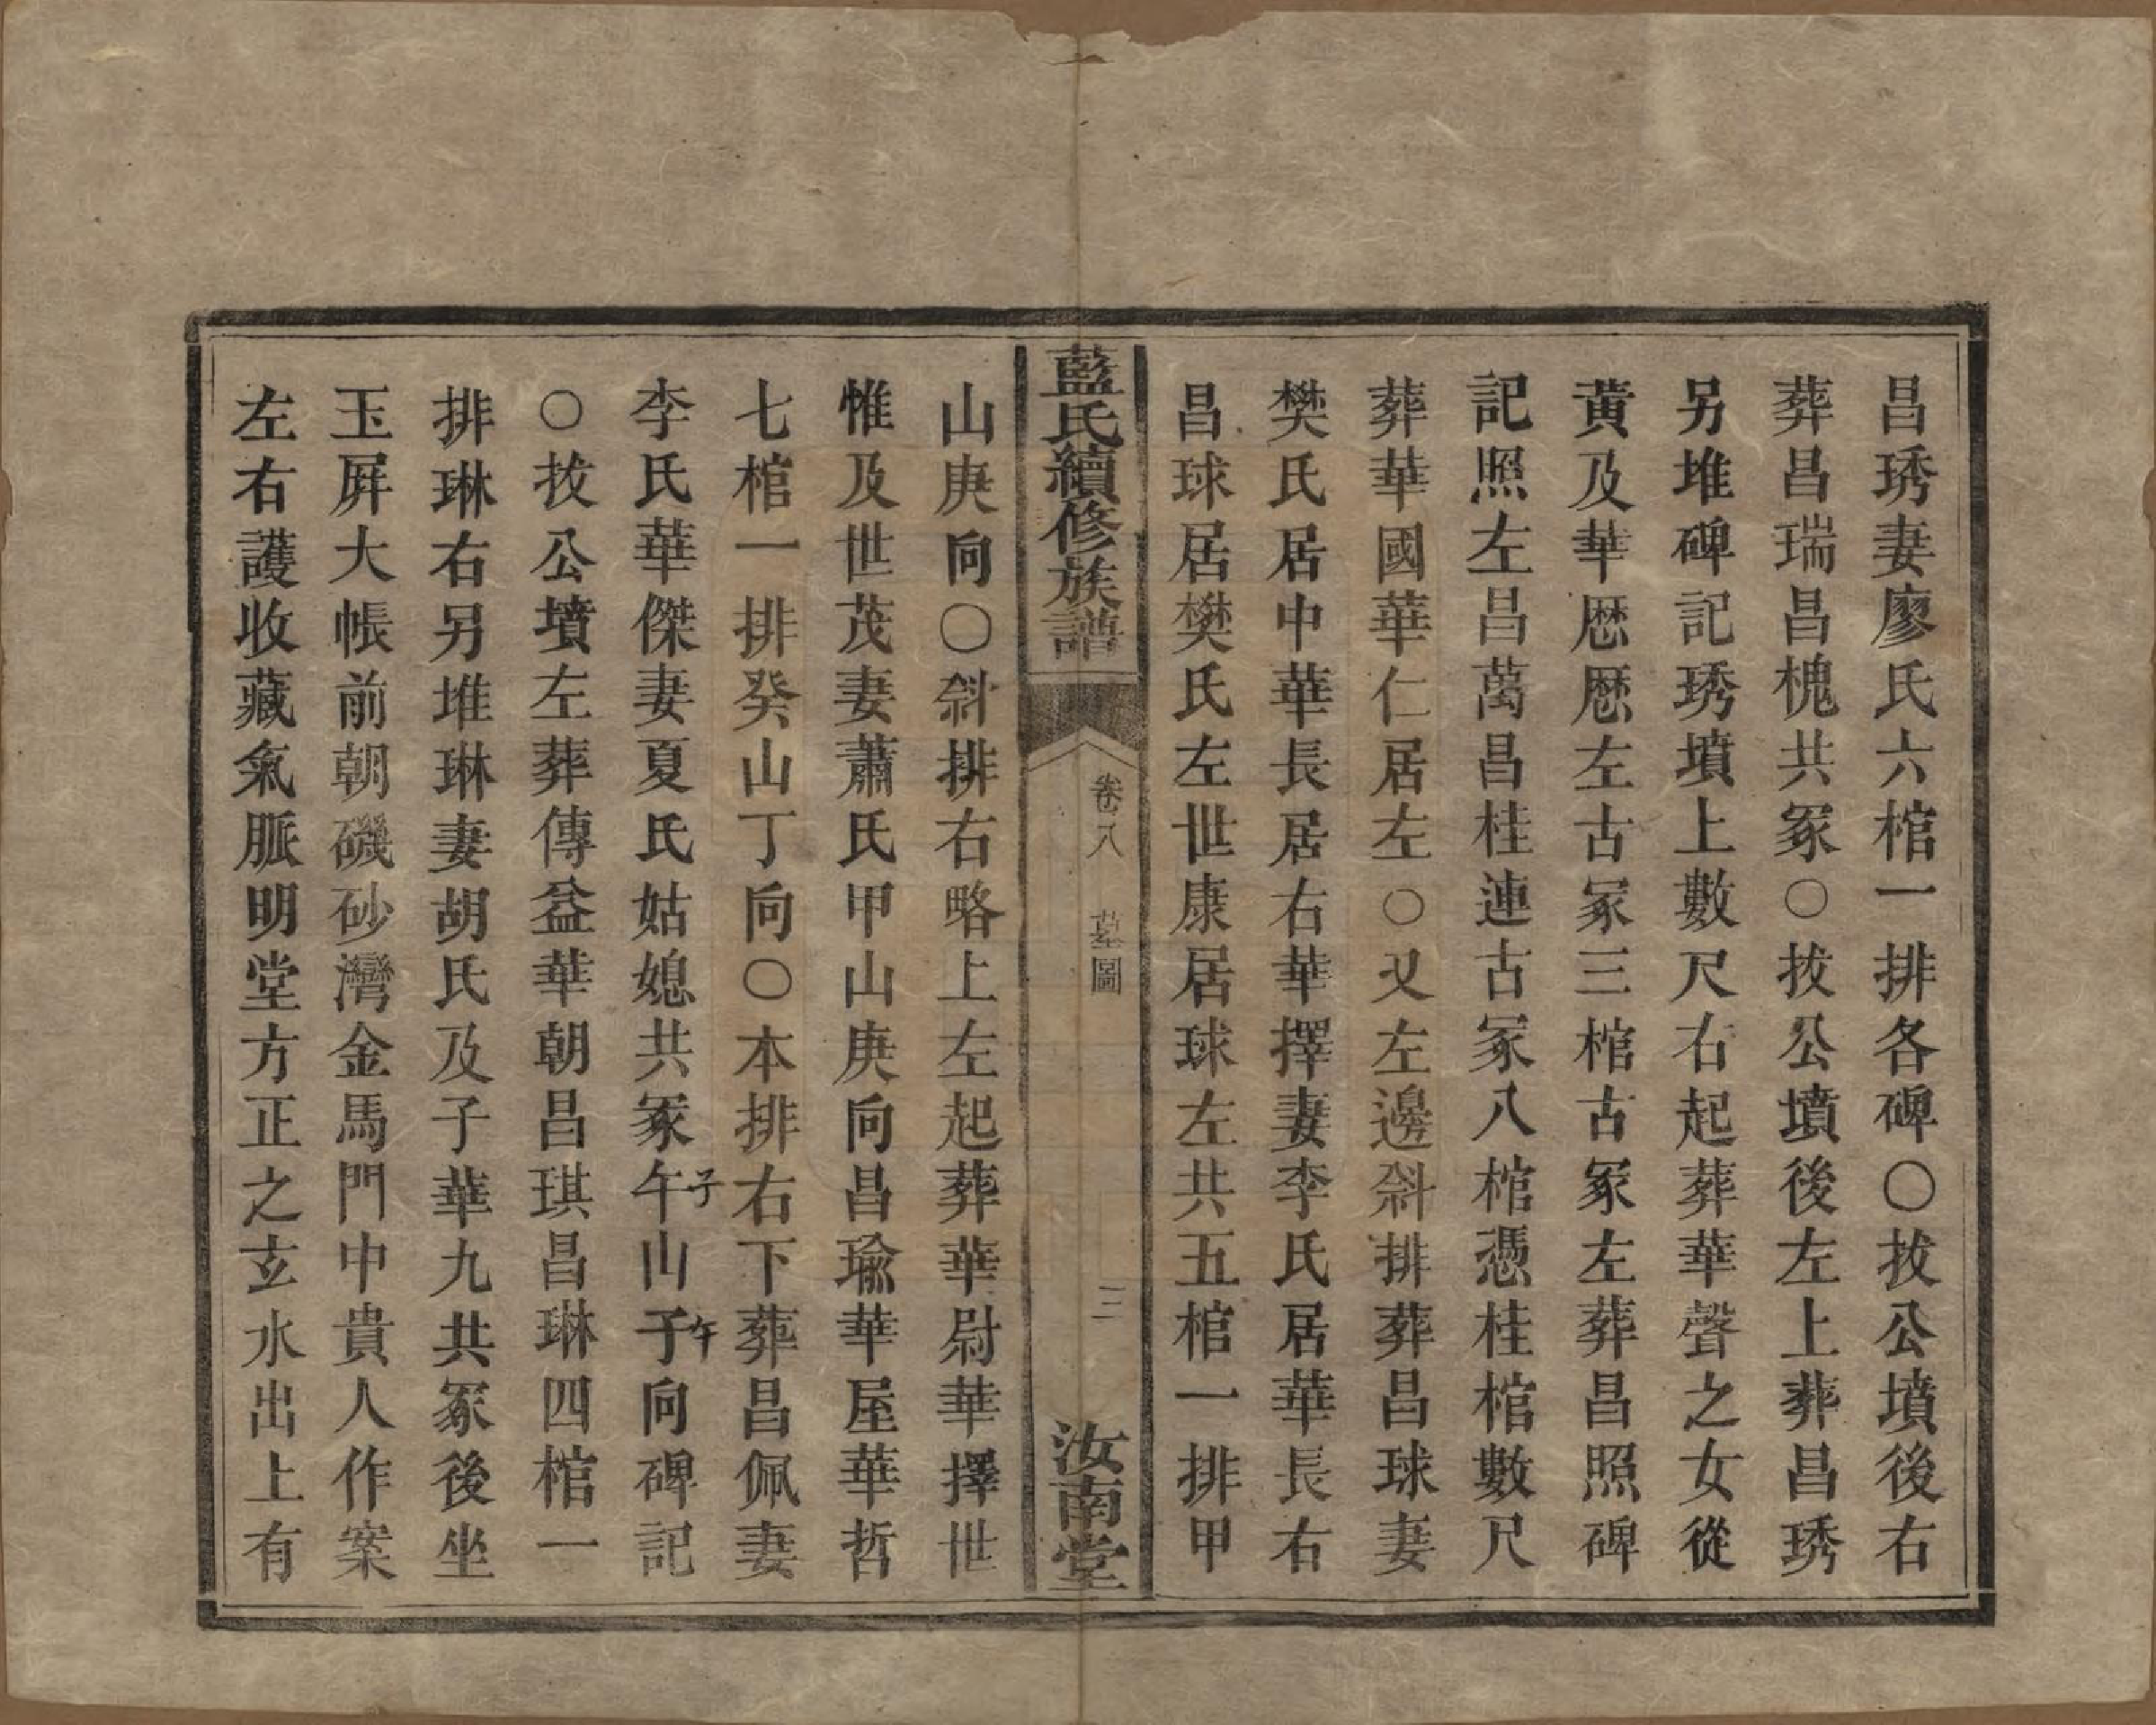 昌琇妻廖氏六棺一排各碑○拔公墳後右
葬昌瑞昌槐共冢○拔公墳後左上葬昌琇
另堆碑記琇墳上數尺右起葬華聲之女從
黃及華愿愿左古冢三棺古冢左葬昌照碑
記照左昌萬昌桂連古冢八棺憑桂棺數尺
葬華國華仁居左○又左邊斜排葬昌球妻
樊氏居中華長居右華擇妻李氏居華長右
昌球居樊氏左世康居球左共五棺一排甲
藍氏續修族譜
卷八 墓圖
三
汝南堂
山庚向○斜排右略上左起葬華尉華擇世
惟及世茂妻蕭氏甲山庚向昌瑜華屋華哲
七棺一排癸山丁向○本排右下葬昌佩妻
李氏華傑妻夏氏姑媳共冢午子山子午向碑記
○拔公墳左葬傳益華朝昌琪昌琳四棺一
排琳右另堆琳妻胡氏及子華九共冢後坐
玉屏大帳前朝磯砂灣金馬門中貴人作案
左右護收藏氣脈明堂方正之玄水出上有